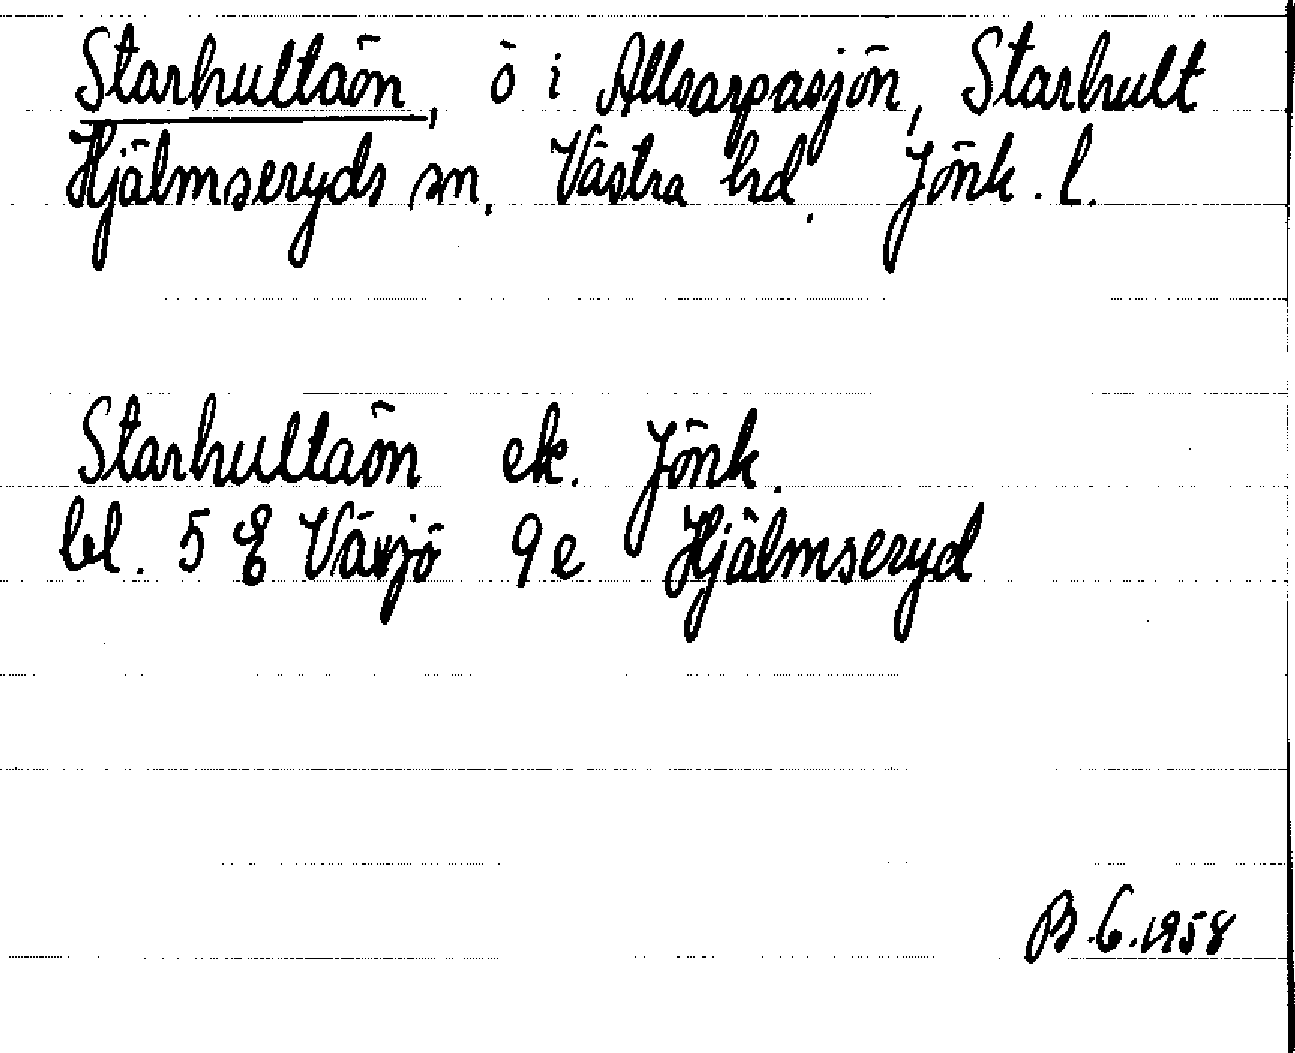 Starhultaön, ö i Allsarpasjön, Starhult
Hjälmseryds sn. Västra hd. Jönk. l.
Starhultaön ek. Jönk.
bl. 5 E Växjö 9e Hjälmseryd
B.G.1958